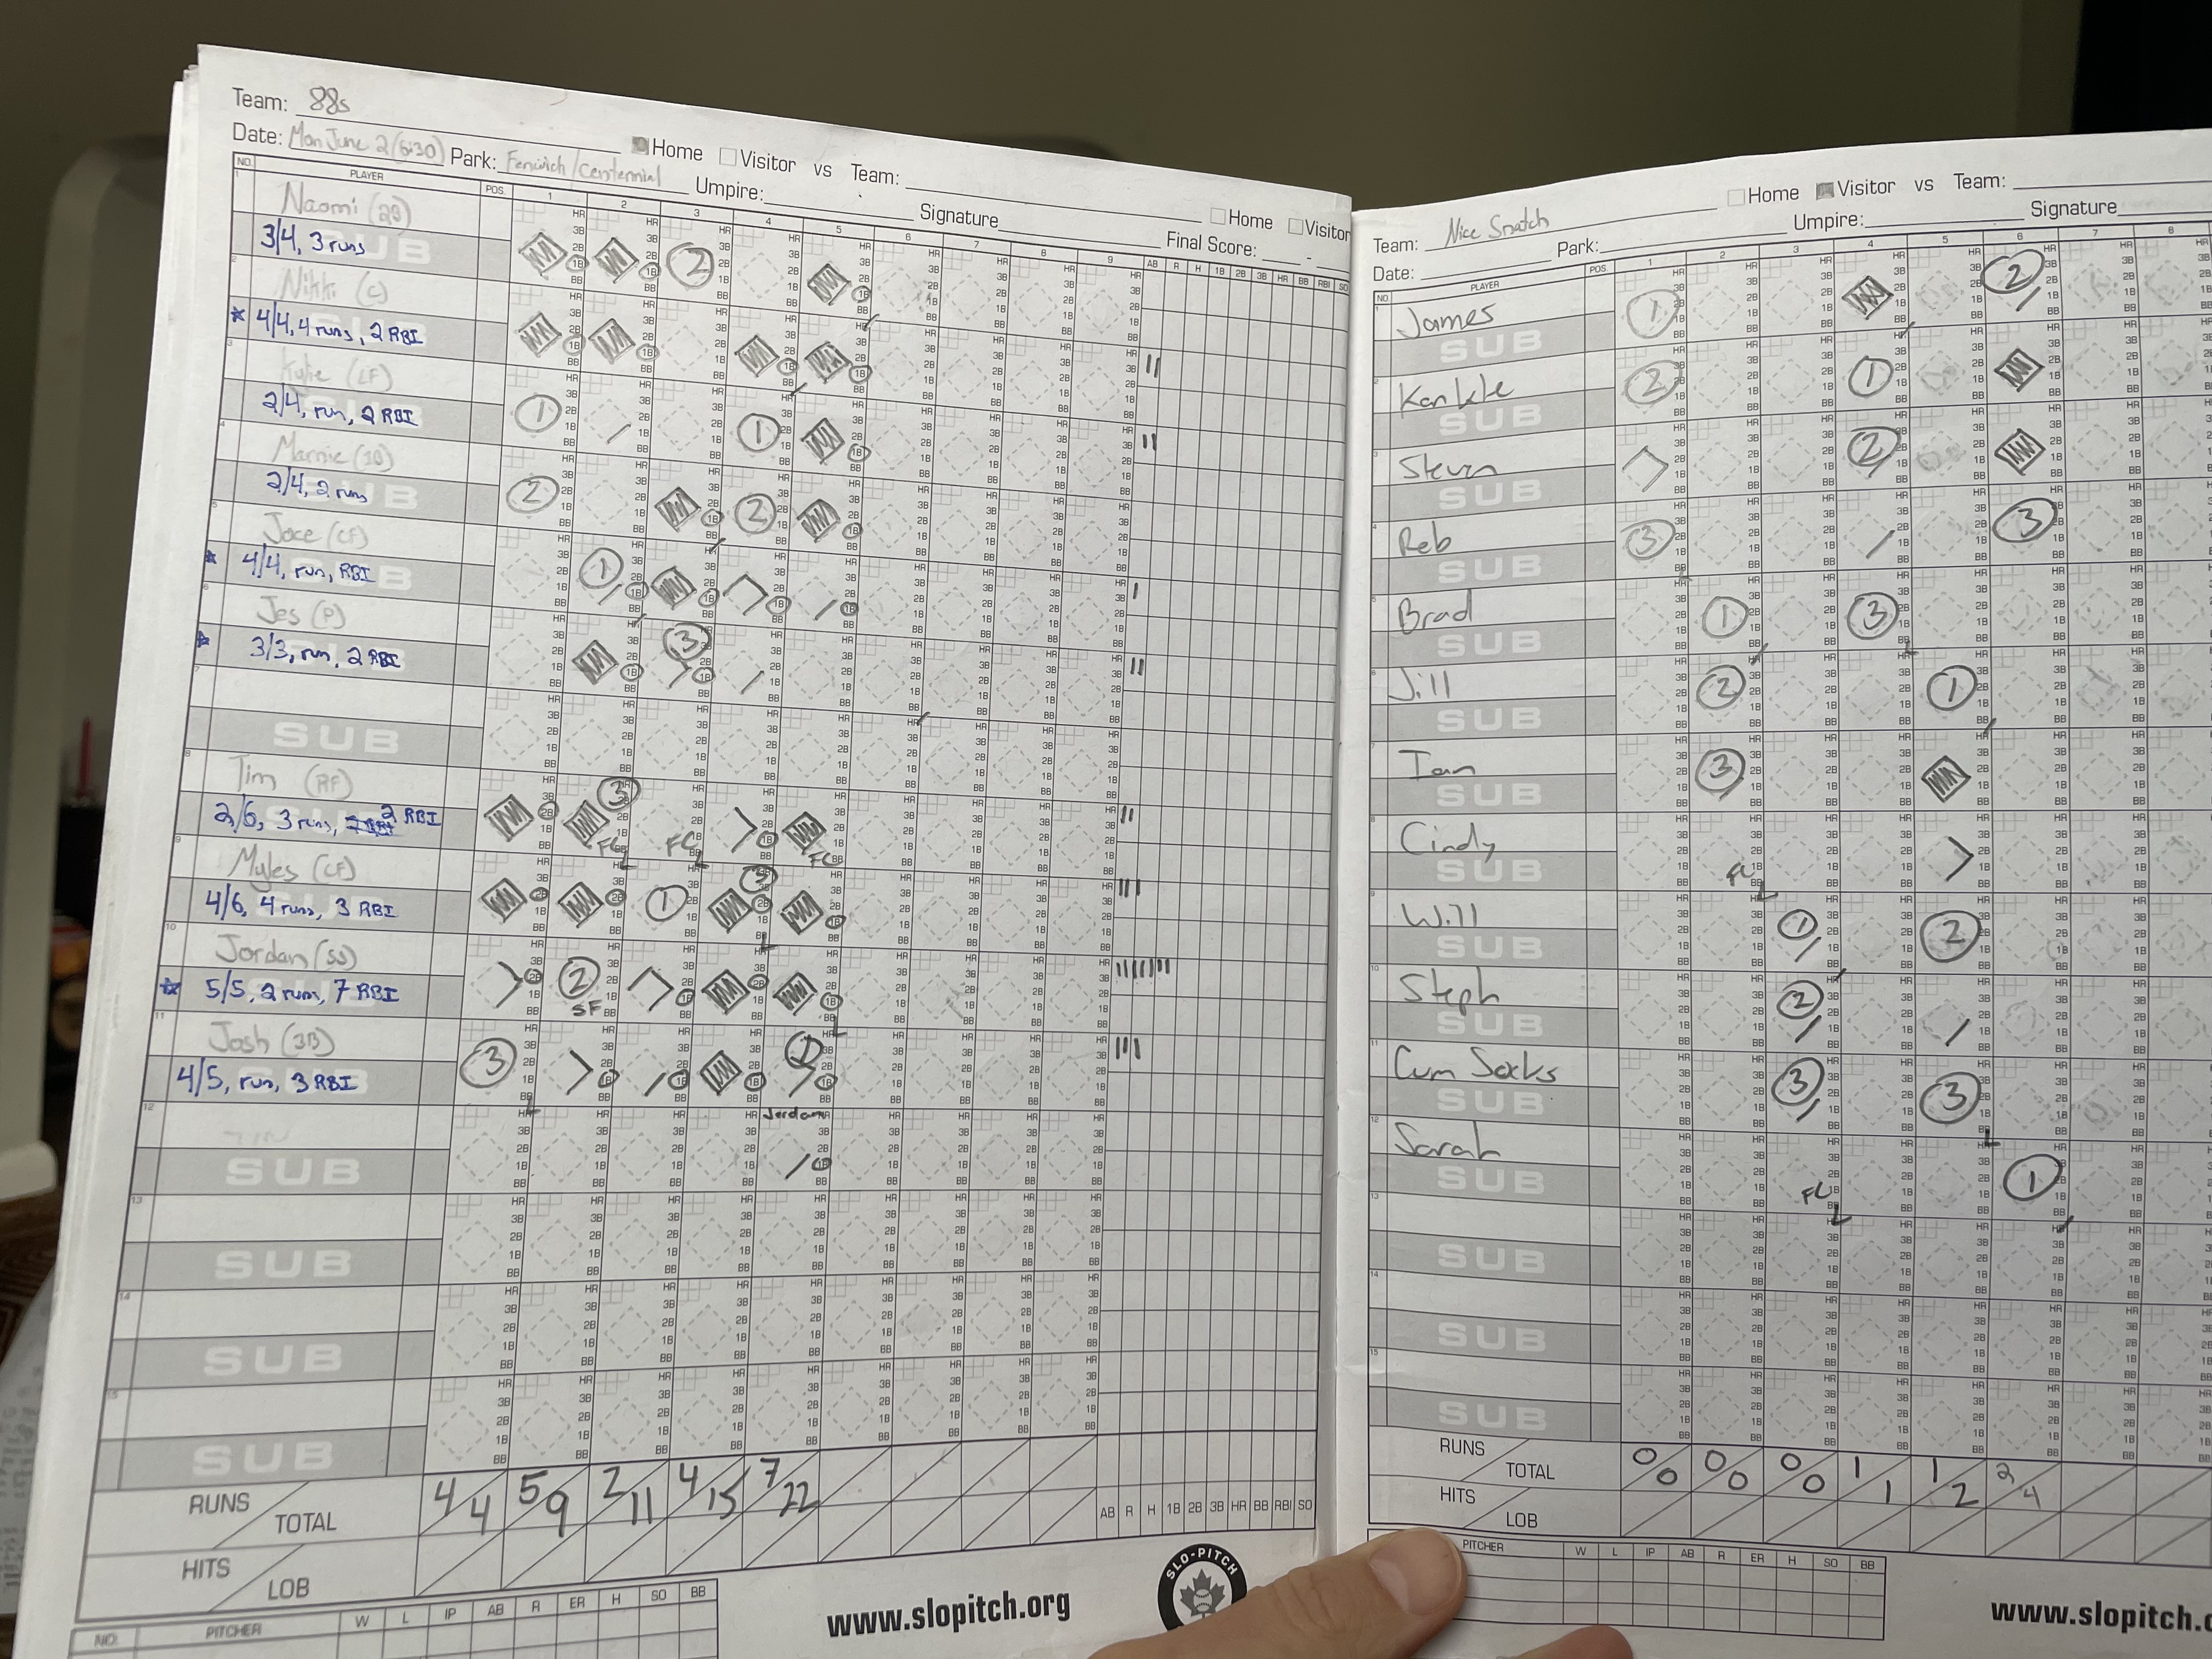 Team: 88s
Date: Mon June 2 (6:30) Park: Fenwich/Centennial Umpire: Signature
Home Visitor vs Team: Home Visitor
Final Score: -
NO. PLAYER POS. 1 2 3 4 5 6 7 8 9 AB R H 1B 2B 3B HR BB RBI SO
1 Naomi (2B)
3/4, 3 runs
2 Nikki (C)
* 4/4, 4 runs, 2 RBI
3 Kylie (LF)
2/4, run, 2 RBI
4 Marnie (1B)
2/4, 2 runs
5 Joce (CF)
* 4/4, run, RBI
6 Jes (P)
* 3/3, run, 2 RBI
7
SUB
8 Tim (RF)
2/6, 3 runs, 2 RBI
9 Myles (CF)
4/6, 4 runs, 3 RBI
10 Jordan (SS)
* 5/5, 2 runs, 7 RBI
11 Josh (3B)
4/5, run, 3 RBI
12 Jordan
SUB
13
SUB
14
SUB
15
SUB
RUNS TOTAL 4/4 5/9 2/11 4/15 7/22
HITS LOB
AB R H 1B 2B 3B HR BB RBI SO
NO. PITCHER W L IP AB R ER H SO BB
www.slopitch.org
SLO-PITCH
Team: Nice Snatch
Home Visitor vs Team:
Date: Park: Umpire: Signature
NO. PLAYER POS. 1 2 3 4 5 6 7 8
1 James
SUB
2 Kankle
SUB
3 Steven
SUB
4 Reb
SUB
5 Brad
SUB
6 Jill
SUB
7 Ian
SUB
8 Cindy
SUB
9 Will
SUB
10 Steph
SUB
11 Cum Socks
SUB
12 Sarah
SUB
13
SUB
14
SUB
15
SUB
RUNS TOTAL 0/0 0/0 0/0 1/1 1/2 2/4
HITS LOB
PITCHER W L IP AB R ER H SO BB
www.slopitch.